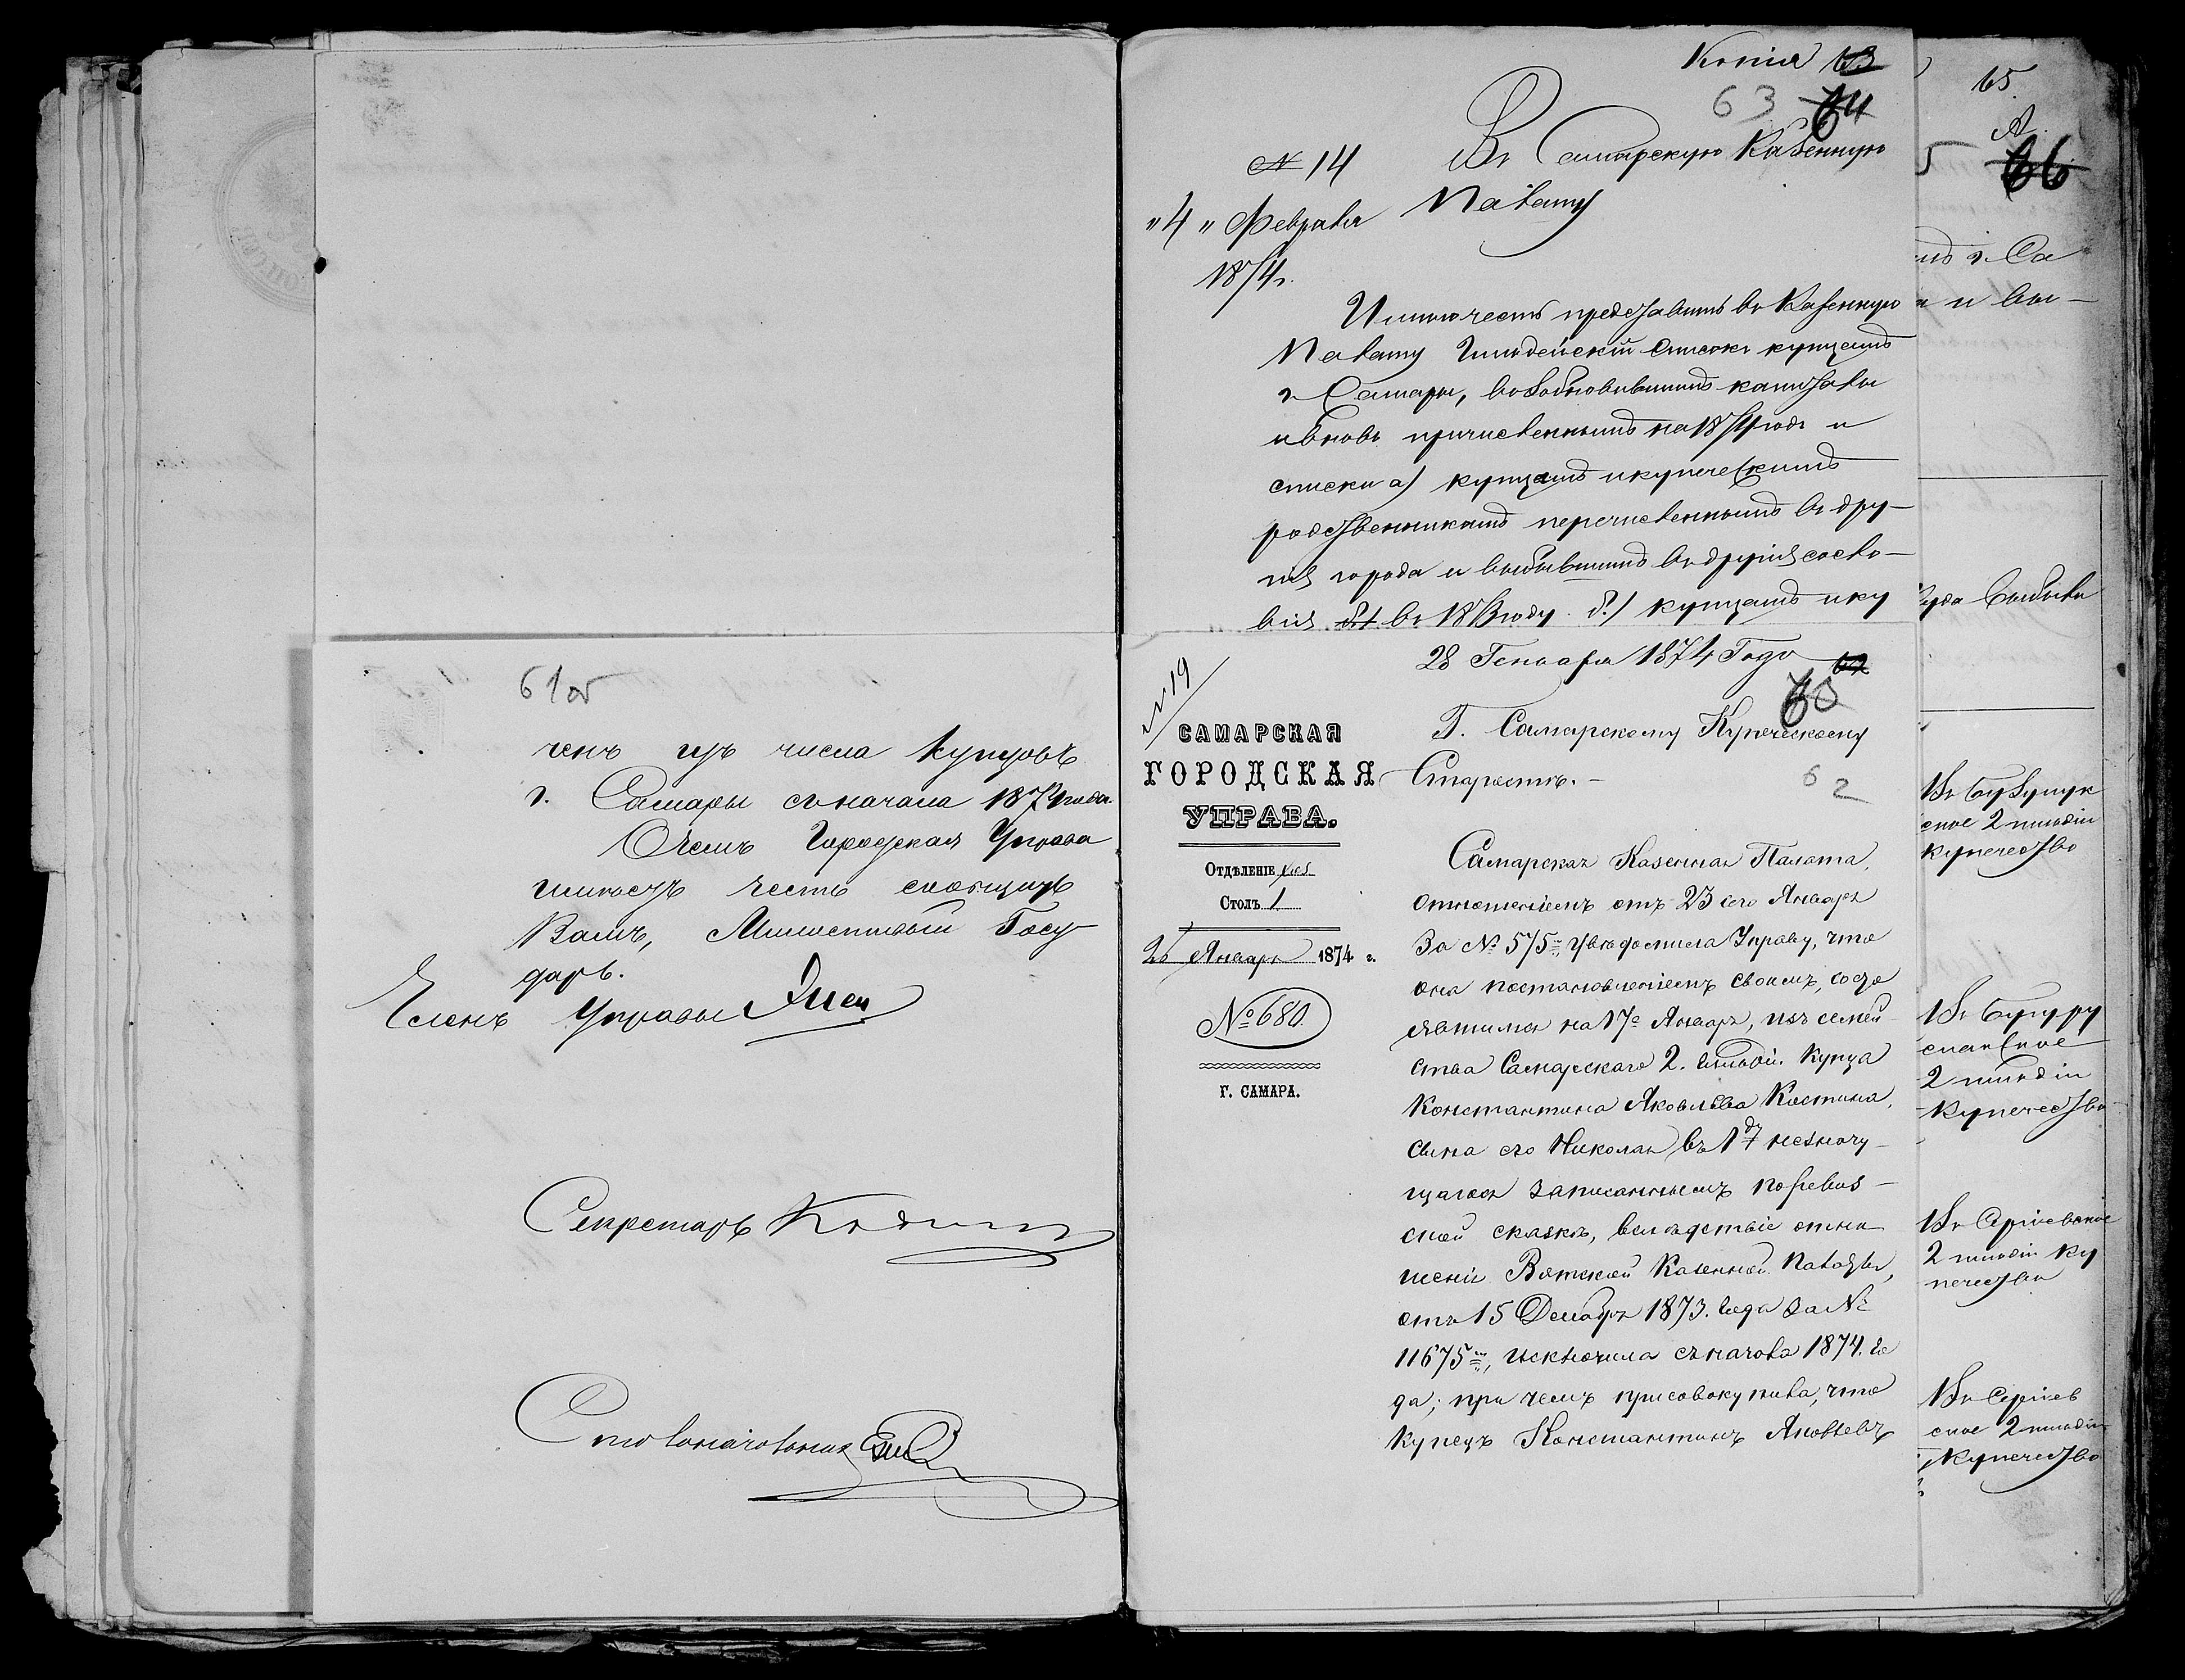 61об
ченъ изъ числа купцовъ
г. Самары съ начала 1874 года.
О чемъ Городская Управа
имѣетъ честь сообщить
Вамъ, Милостивый Госу-
дарь.
Членъ Управы
Секретарь
Столоначальникъ
Копія 63
63 64
№ 14
"4" Февраля
1874 г.
Въ Самарскую Казенную
Палату
Имѣю честь представить въ Казенную
Палату Гильдейскій списокъ купцамъ
г. Самары, возобновившимъ капиталы
и вновь причисленнымъ на 1874 годъ и
списки а) купцамъ и купеческимъ
родственникамъ перечисленнымъ въ дру-
гія города и выбывшимъ въ другія сосло-
вія б) въ 1873 году. б.) купцамъ и ку
28 Генваря 1874 Года
62
Г. Самарскому Купеческому
Старостѣ.-
62
№ 19
САМАРСКАЯ
ГОРОДСКАЯ
УПРАВА.
Отдѣленіе
Столъ 1
26 Января 1874 г.
№ 680.
Г. САМАРА.
Самарская Казенная Палата,
отношеніемъ отъ 23 сего Января
за № 575, увѣдомила Управу, что
она постановленіемъ своимъ, состо
явшимся на 17е Января, изъ семей-
ства Самарскаго 2. гильдіи купца
Константина Яковлева Костина,
сына его Николая въ 1й незначу-
щагося записаннымъ по ревиз-
ской сказкѣ, вслѣдствіе отно
шенія Вятской Казенной Палаты,
отъ 15 Декабря 1873. года за №
11675, исключила съ начала 1874. го
да; при чемъ присовокупила, что
купецъ Константинъ Яковлевъ
65
66
г. Са
и вы-
куда выбыли
Въ Бузулук
ское 2 гильдіи
купечество
Въ Бугуру
сланское
2 гильдіи
купечество
Въ Сергіевское
2 гильдіи ку
печество
Въ Сергіев
ское 2 гильдіи
купечество